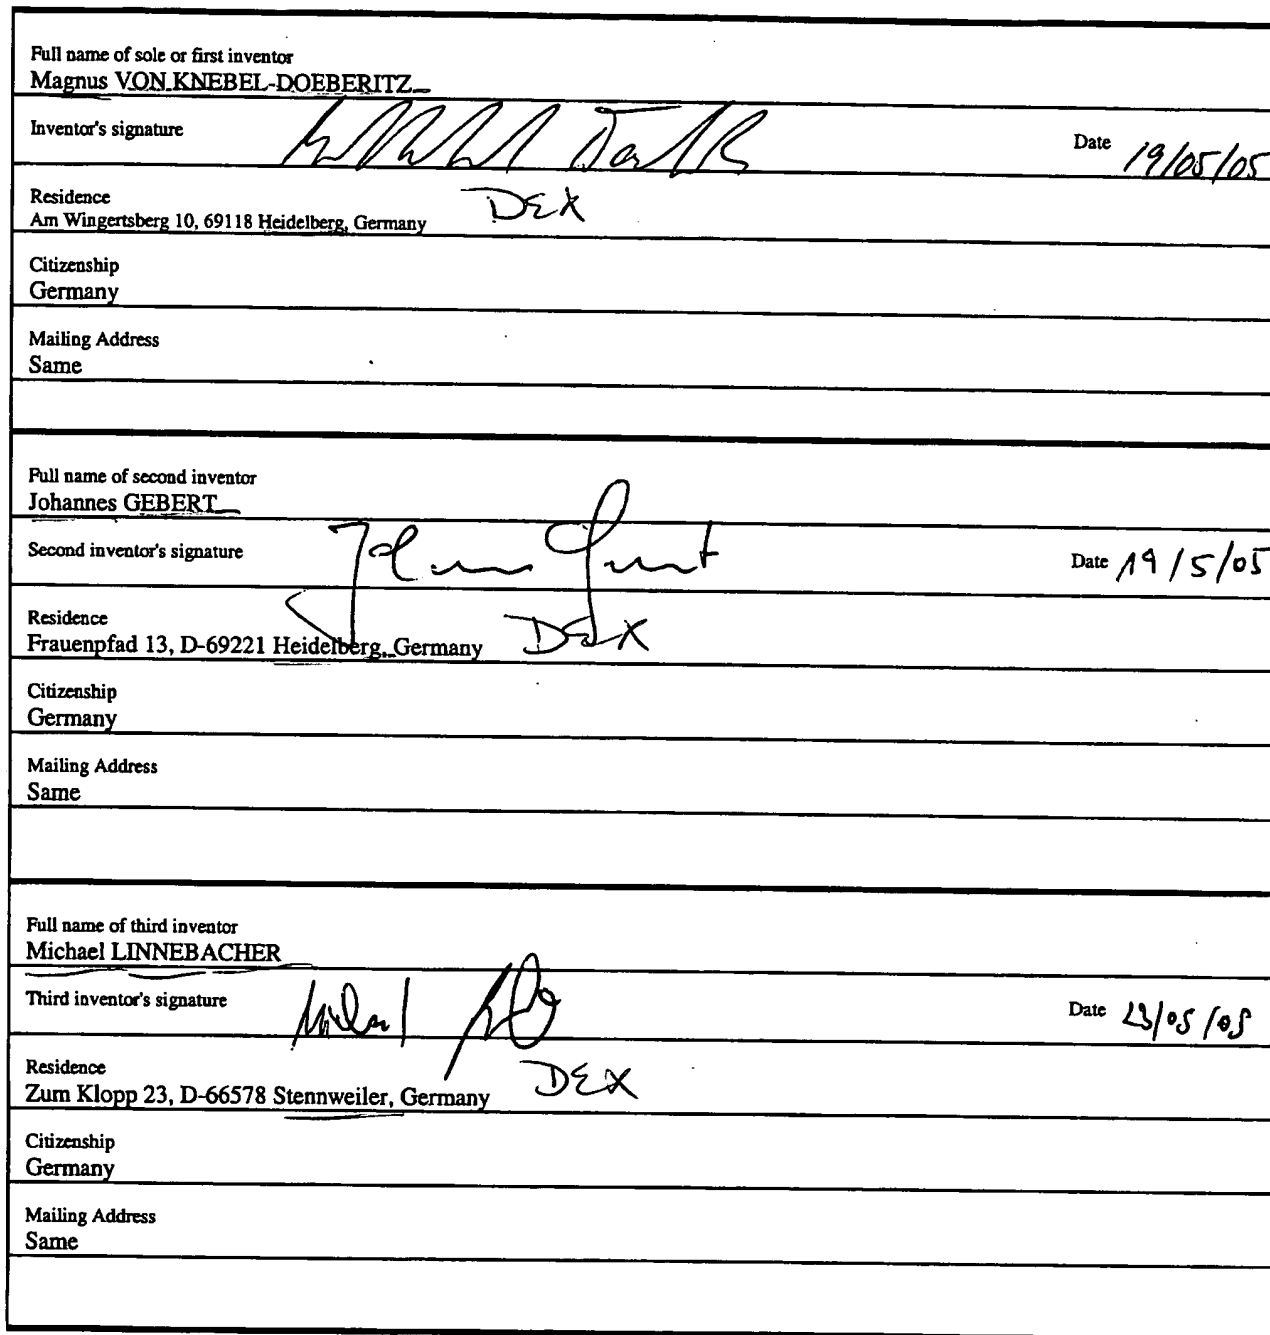 Full name of sole or first inventor
Magnus VON KNEBEL-DOEBERITZ
Inventor's signature
Date 19/05/05
Residence
DEX
Am Wingertsberg 10, 69118 Heidelberg, Germany
Citizenship
Germany
Mailing Address
Same
Full name of second inventor
Johannes GEBERT
Second inventor's signature
Date 19/5/05
Residence
Frauenpfad 13, D-69221 Heidelberg, Germany DEX
Citizenship
Germany
Mailing Address
Same
Full name of third inventor
Michael LINNEBACHER
Third inventor's signature
Date 23/05/05
Residence
Zum Klopp 23, D-66578 Stennweiler, Germany DEX
Citizenship
Germany
Mailing Address
Same